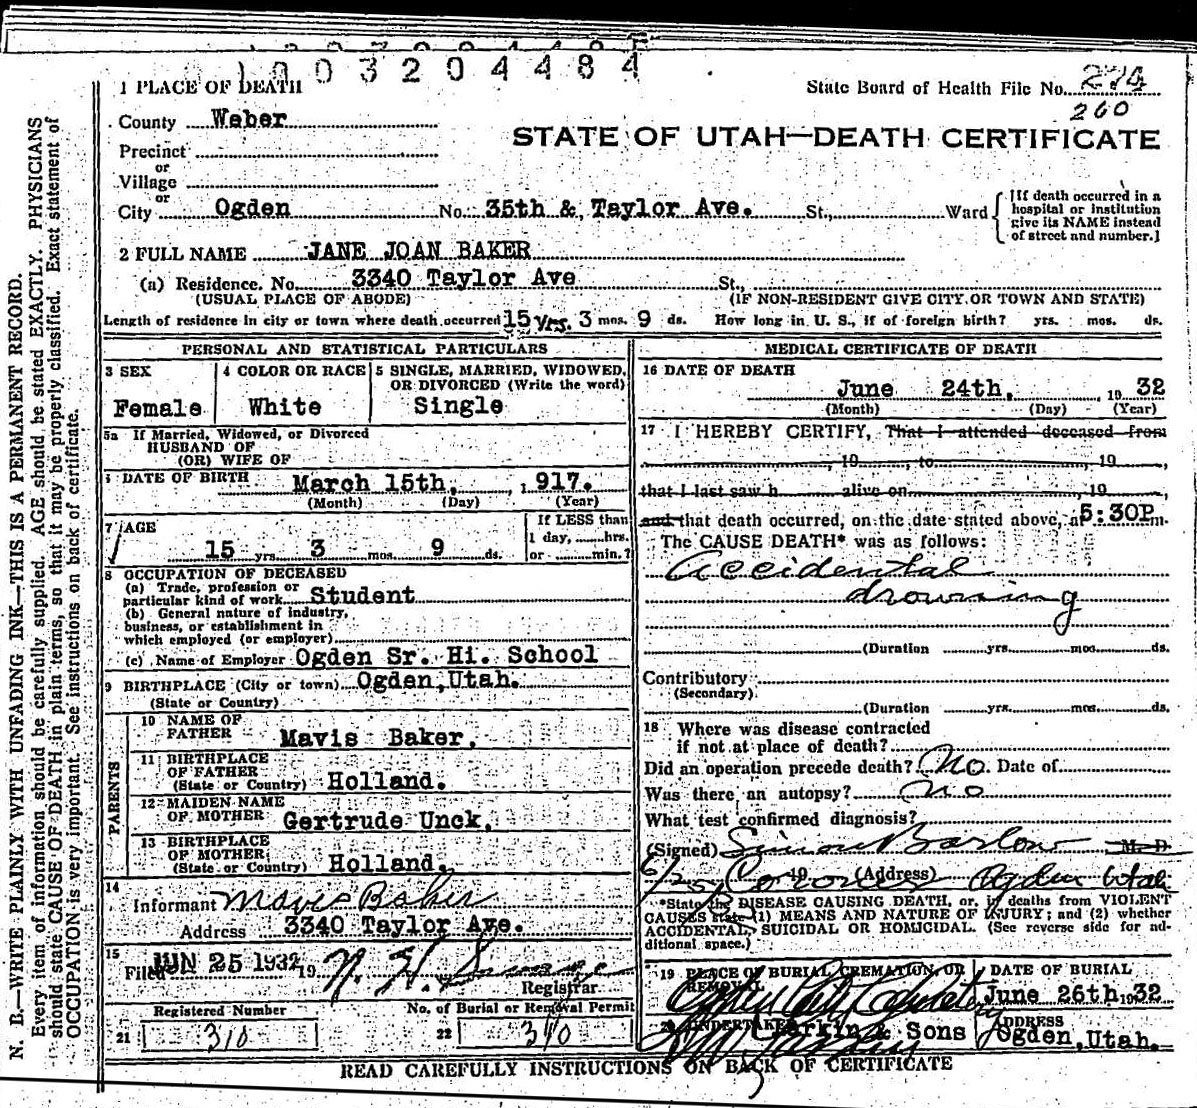 1003204484
1 PLACE OF DEATH
State Board of Health File No. 274
260
County Weber
STATE OF UTAH—DEATH CERTIFICATE
Precinct
or
Village
or
City Ogden No. 35th & Taylor Ave. St., Ward
[If death occurred in a
hospital or institution
give its NAME instead
of street and number.]
2 FULL NAME JANE JOAN BAKER
(a) Residence. No. 3340 Taylor Ave St.,
(USUAL PLACE OF ABODE) (IF NON-RESIDENT GIVE CITY OR TOWN AND STATE)
Length of residence in city or town where death occurred 15 yrs. 3 mos. 9 ds. How long in U. S., if of foreign birth? yrs. mos. ds.
PERSONAL AND STATISTICAL PARTICULARS
3 SEX
Female
4 COLOR OR RACE
White
5 SINGLE, MARRIED, WIDOWED,
OR DIVORCED (Write the word)
Single
5a If Married, Widowed, or Divorced
HUSBAND OF
(OR) WIFE OF
6 DATE OF BIRTH March 15th, 1917.
(Month) (Day) (Year)
7 AGE
15 yrs. 3 mos. 9 ds.
If LESS than
1 day, hrs.
or min.?
8 OCCUPATION OF DECEASED
(a) Trade, profession or
particular kind of work Student
(b) General nature of industry,
business, or establishment in
which employed (or employer)
(c) Name of Employer Ogden Sr. Hi. School
9 BIRTHPLACE (City or town) Ogden, Utah.
(State or Country)
PARENTS
10 NAME OF
FATHER Mavis Baker.
11 BIRTHPLACE
OF FATHER
(State or Country) Holland.
12 MAIDEN NAME
OF MOTHER Gertrude Unck.
13 BIRTHPLACE
OF MOTHER
(State or Country) Holland.
14
Informant Mavis Baker
Address 3340 Taylor Ave.
15
Filed JUN 25 1932 19
Registrar
Registered Number
21 310
No. of Burial or Removal Permit
22 310
MEDICAL CERTIFICATE OF DEATH
16 DATE OF DEATH
June 24th, 1932
(Month) (Day) (Year)
17 I HEREBY CERTIFY, That I attended deceased from
, 19 , to , 19 ,
that I last saw h alive on , 19 ,
and that death occurred, on the date stated above, at 5:30P m.
The CAUSE DEATH* was as follows:
Accidental
drowning
(Duration yrs. mos. ds.
Contributory
(Secondary)
(Duration yrs. mos. ds.
18 Where was disease contracted
if not at place of death?
Did an operation precede death? No. Date of
Was there an autopsy? No
What test confirmed diagnosis?
(Signed) Simon Barlow M. D.
6/25 19 Coroner (Address) Ogden Utah
*State the DISEASE CAUSING DEATH, or, in deaths from VIOLENT
CAUSES state (1) MEANS AND NATURE OF INJURY; and (2) whether
ACCIDENTAL, SUICIDAL OR HOMICIDAL. (See reverse side for ad-
ditional space.)
19 PLACE OF BURIAL CREMATION OR
REMOVAL
Ogden City Cemetery
DATE OF BURIAL
June 26th 1932
20 UNDERTAKER Larkin & Sons
ADDRESS
Ogden, Utah.
READ CAREFULLY INSTRUCTIONS ON BACK OF CERTIFICATE
N. B.—WRITE PLAINLY WITH UNFADING INK—THIS IS A PERMANENT RECORD.
Every item of information should be carefully supplied. AGE should be stated EXACTLY. PHYSICIANS
should state CAUSE OF DEATH in plain terms, so that it may be properly classified. Exact statement of
OCCUPATION is very important. See instructions on back of certificate.